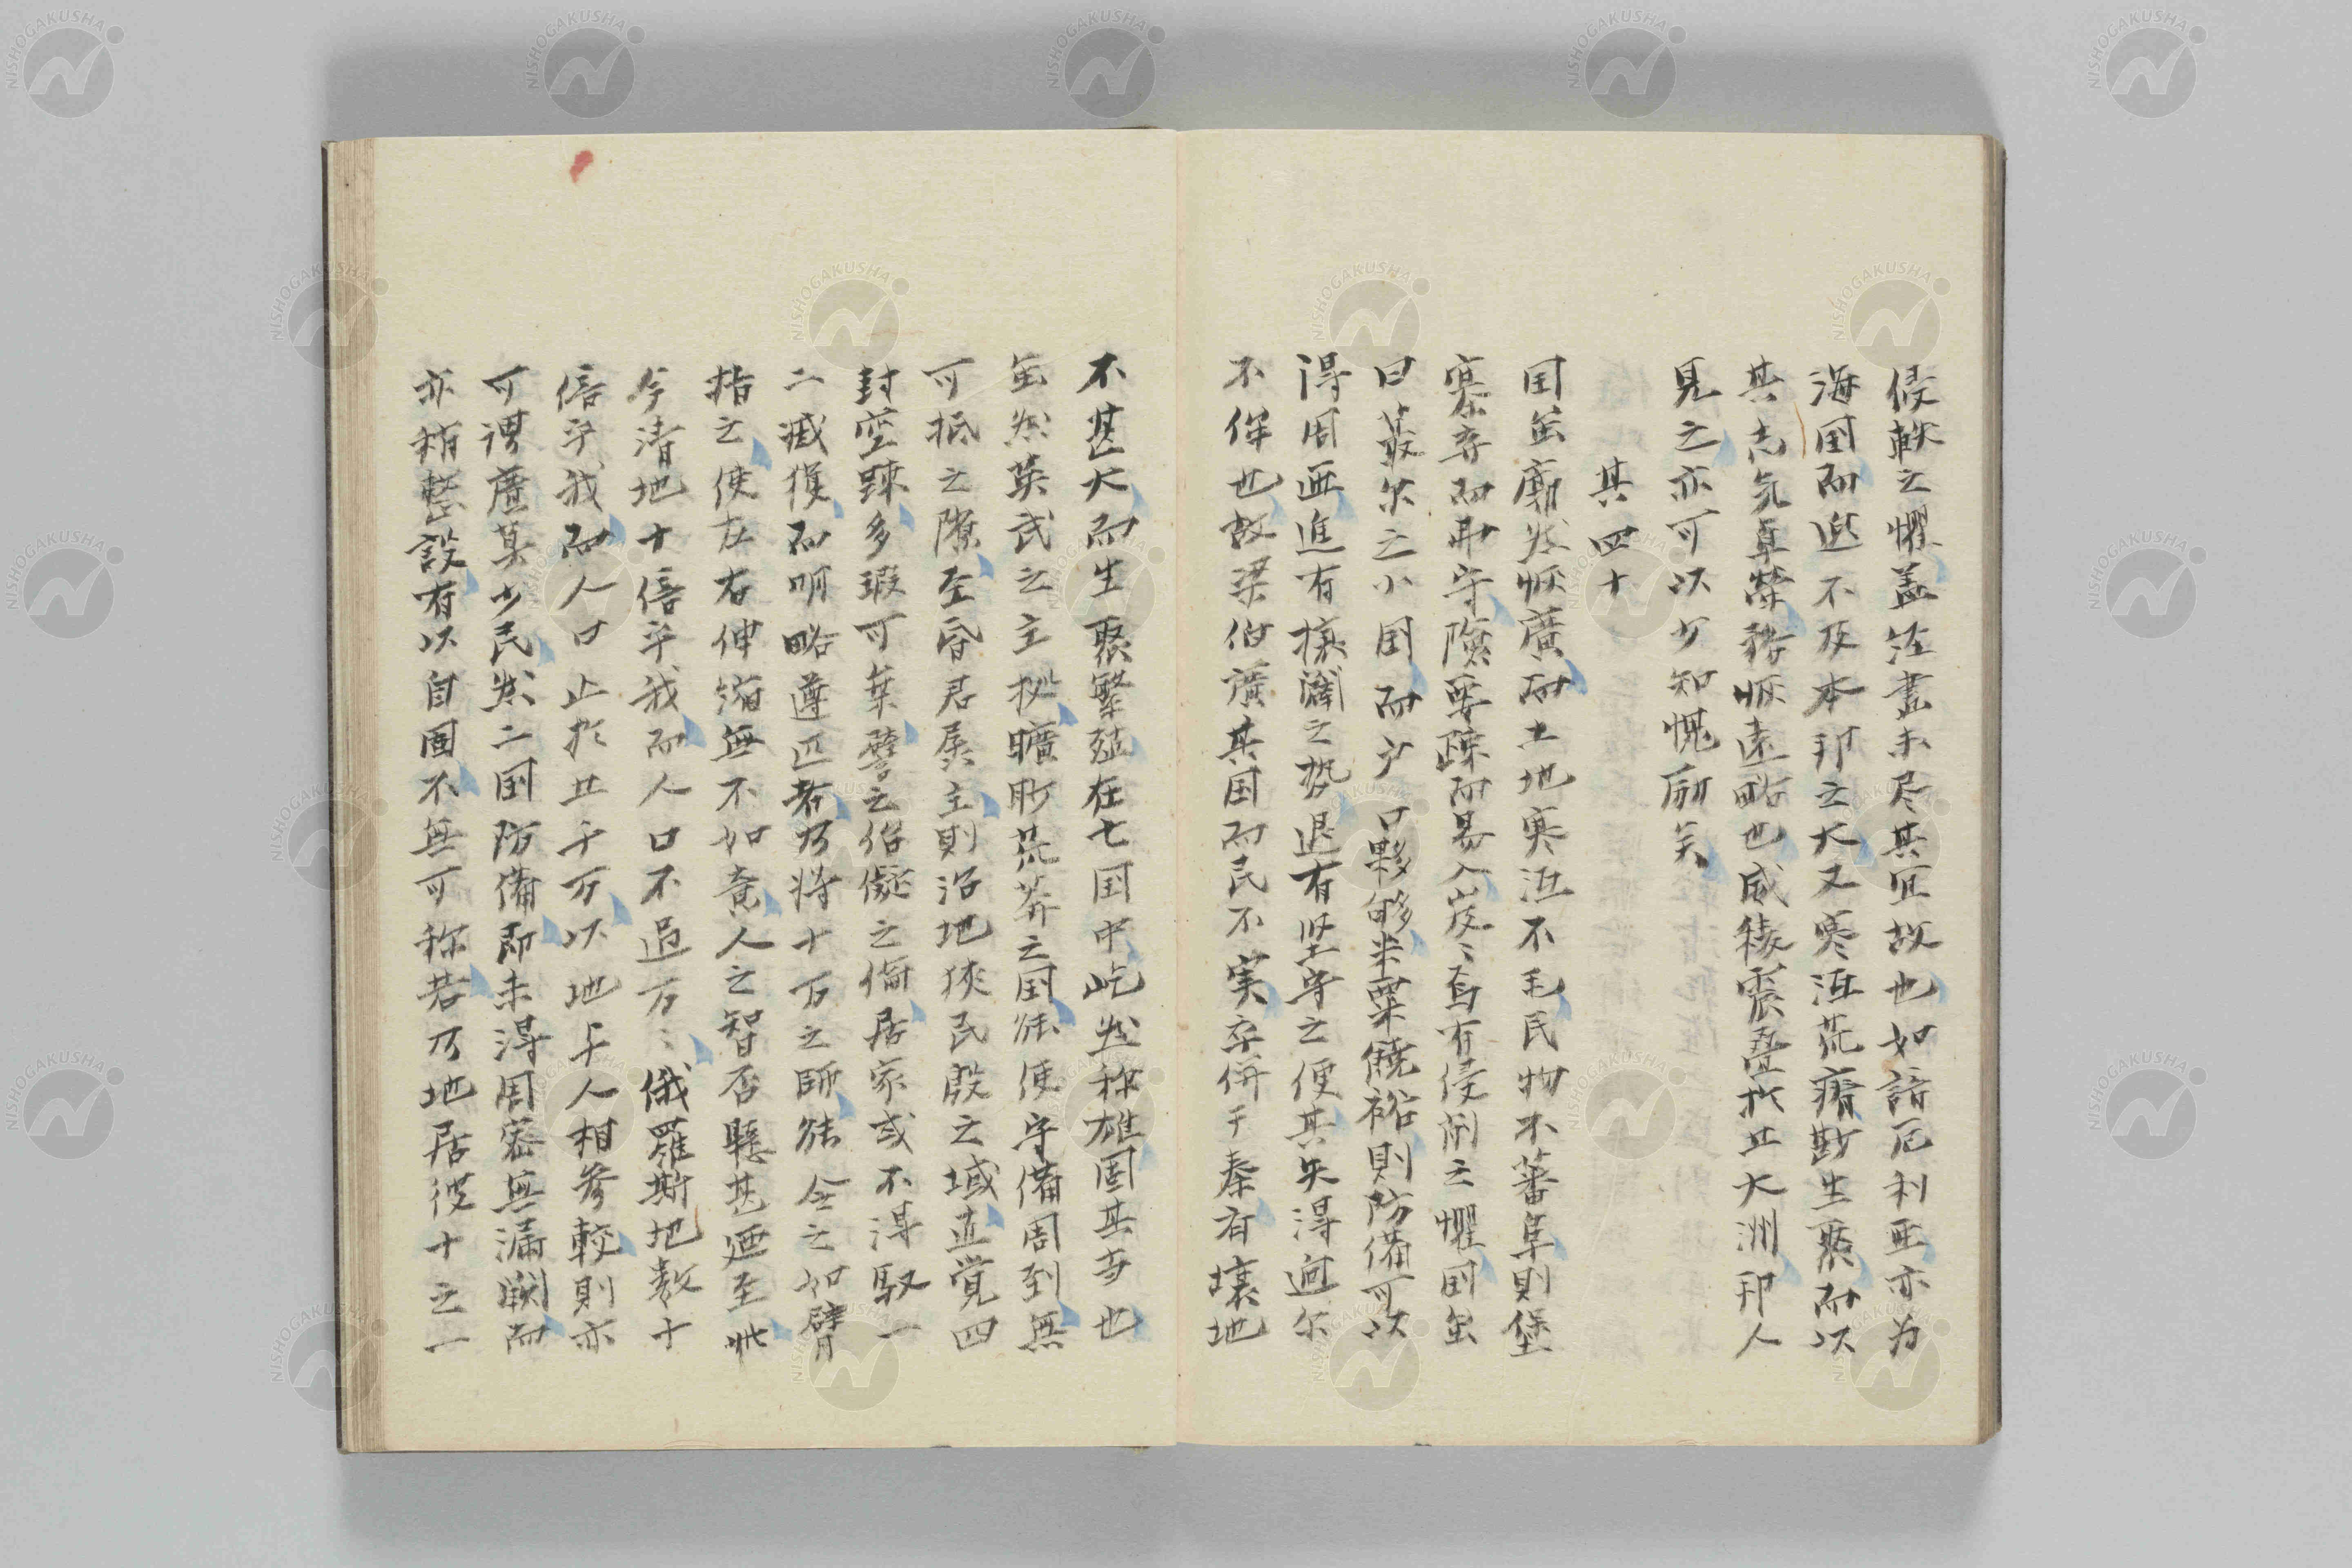 侵軼之懼盖経畫未尽其宜故也如諳厄利亜亦为
海国而迤不及本邦之大又寒沍荒瘠尠生聚而以
其志気卓犖務恢遠略也威稜震疊於丗大洲邦人
見之亦可以少知愧励矣
其四十
国虽廓然恢廣而土地寒沍不毛民物不蕃阜則堡
寨夯而毌守険要疎而易入岌〻焉有侵削之懼国虽
曰蕞尔之小国而戸口夥够米粟饒裕則防備可以
得周匝進有攘闢之势退有坚守之便其失得逈尓
不侔也故梁伯廣其国而民不実卒併于秦有壤地
不甚大而生聚繁殖在七国中屹然称雄国其寺也
虽然英武之主撫曠眇荒莽之国能使守備周到無
可抵之隙至昏君孱主則沿地狹民殷之域直覚四
封莹踈多瑕可乗譬之俗儗之倫居家或不得馭一
二臧獲而明略遵匹者乃将十万之師能令之如臂
指之使左右伸縮無不如意人之智否懸甚廼至此
今清地十倍乎我而人口不過万〻俄羅斯地数十
倍乎我而人口止於丗千万以地与人相参較則亦
可谓廣莫少民然二国防備即未得周密無漏闕而
亦稍整設有以自固不無可称若乃地居彼十之一